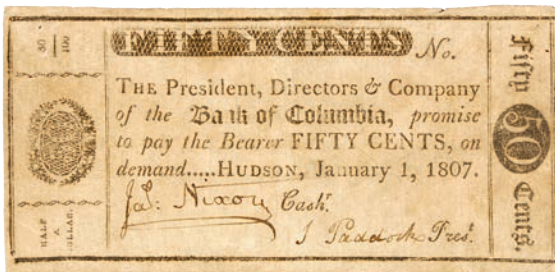 50
100
FIFTY CENTS No.
THE President, Directors & Company
of the Bank of Columbia, promise
to pay the Bearer FIFTY CENTS, on
demand.....HUDSON, January 1, 1807.
Jas: Nixon Cashr.
J Paddock Prest.
HALF
A
DOLLAR.
Fifty 50 Cents